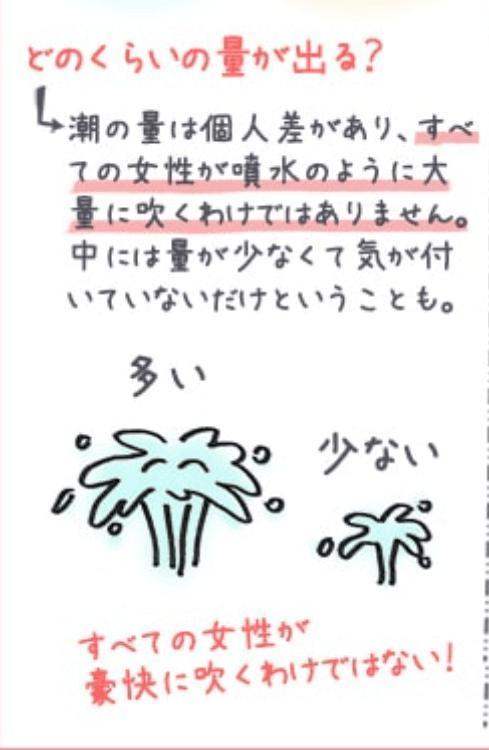 どのくらいの量が出る?
潮の量は個人差があり、すべ
ての女性が噴水のように大
量に吹くわけではありません。
中には量が少なくて気が付
いていないだけということも。
多い
少ない
すべての女性が
豪快に吹くわけではない!